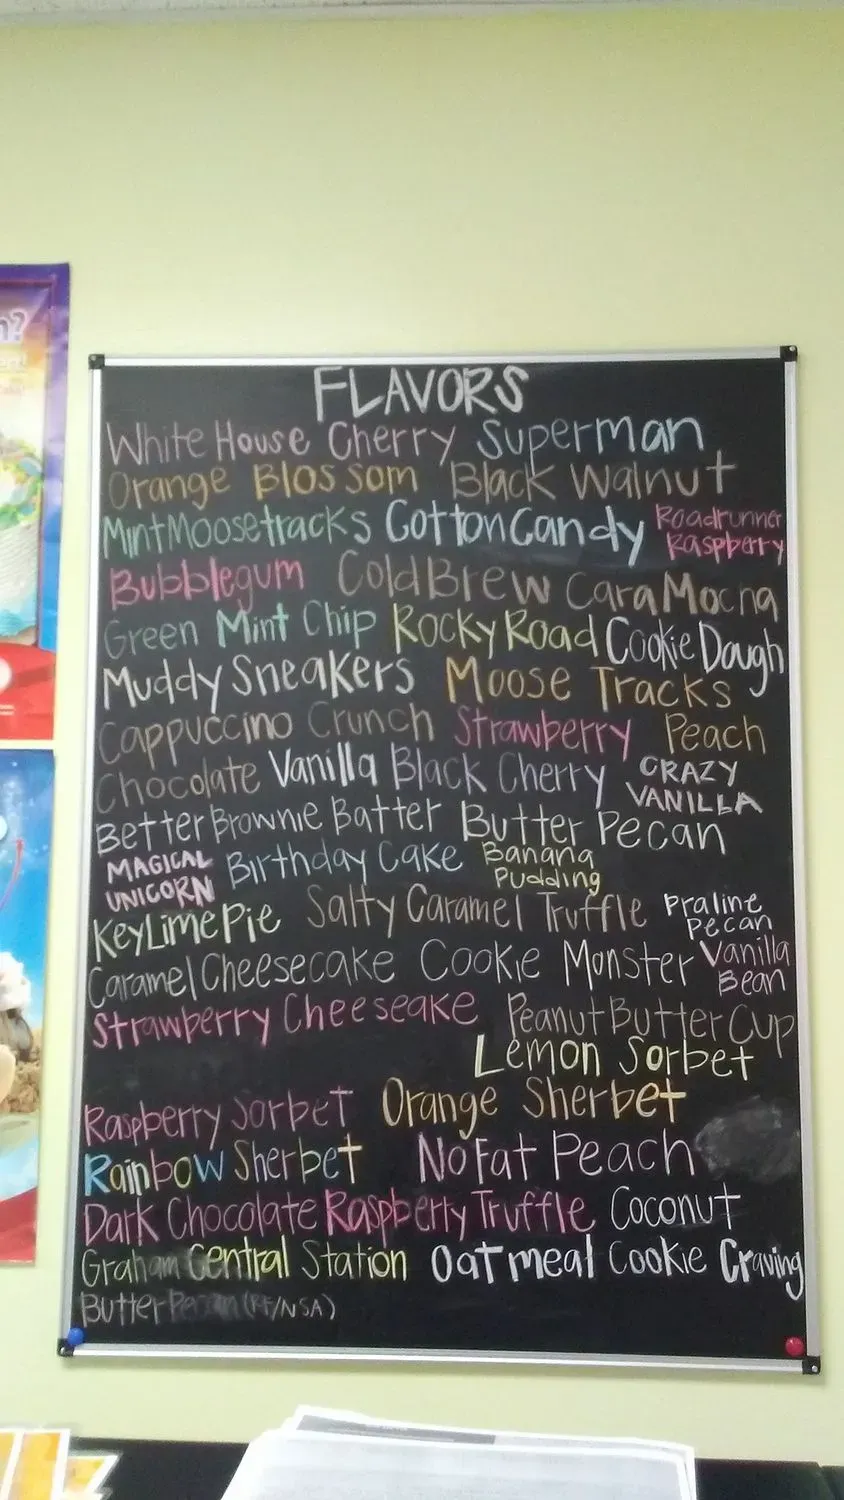 n?
FLAVORS
White House Cherry Superman
Orange Blossom Black Walnut
Mint Moosetracks Cotton Candy Roadrunner
Raspberry
Bubblegum Cold Brew Cara Mocha
Green Mint Chip Rocky Road Cookie Dough
Muddy Sneakers Moose Tracks
Cappuccino Crunch Strawberry Peach
Chocolate Vanilla Black Cherry CRAZY
VANILLA
Better Brownie Batter Butter Pecan
MAGICAL
UNICORN Birthday Cake Banana
Pudding
Key Lime Pie Salty Caramel Truffle Praline
Pecan
Caramel Cheesecake Cookie Monster Vanilla
Bean
Strawberry Cheeseake Peanut Butter Cup
Lemon Sorbet
Raspberry Sorbet Orange Sherbet
Rainbow Sherbet No Fat Peach
Dark Chocolate Raspberry Truffle Coconut
Graham Central Station Oatmeal Cookie Craving
Butter Pecan (RF/NSA)